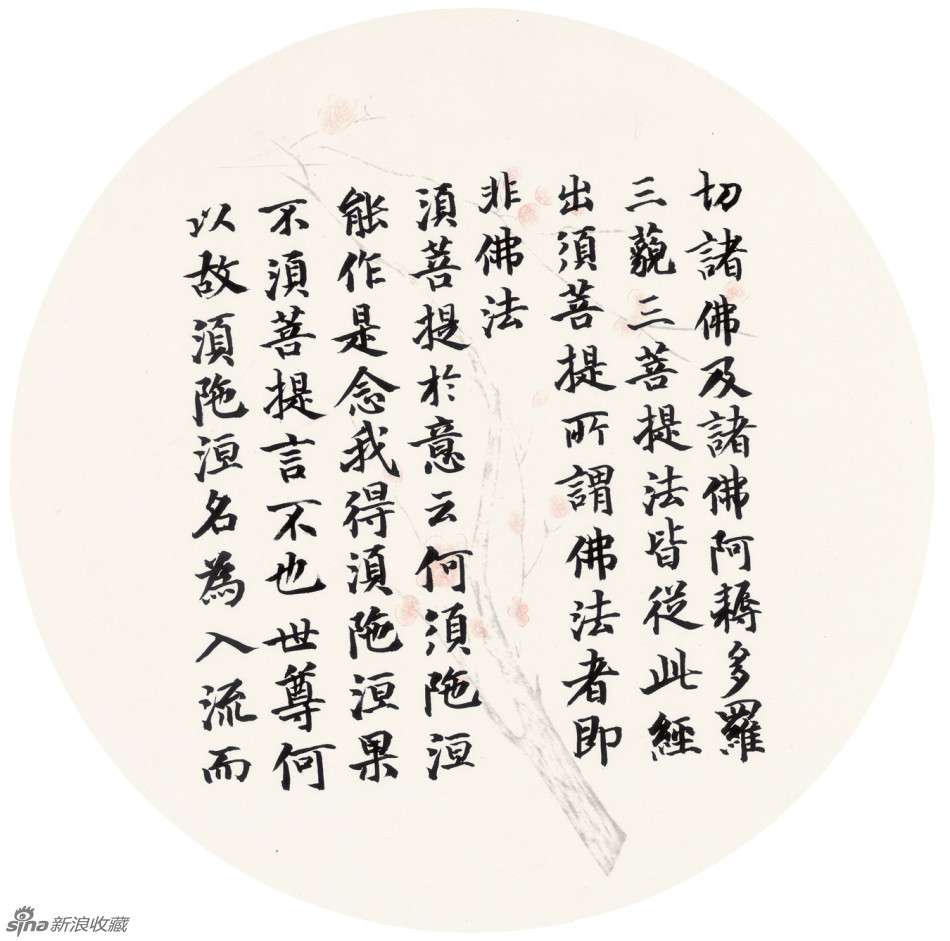 切諸佛及諸佛阿耨多羅
三藐三菩提法皆從此經
出須菩提所謂佛法者即
非佛法
湏菩提於意云何湏陁洹
能作是念我得湏陁洹果
不須菩提言不也世尊何
以故湏陁洹名為入流而
sina新浪收藏